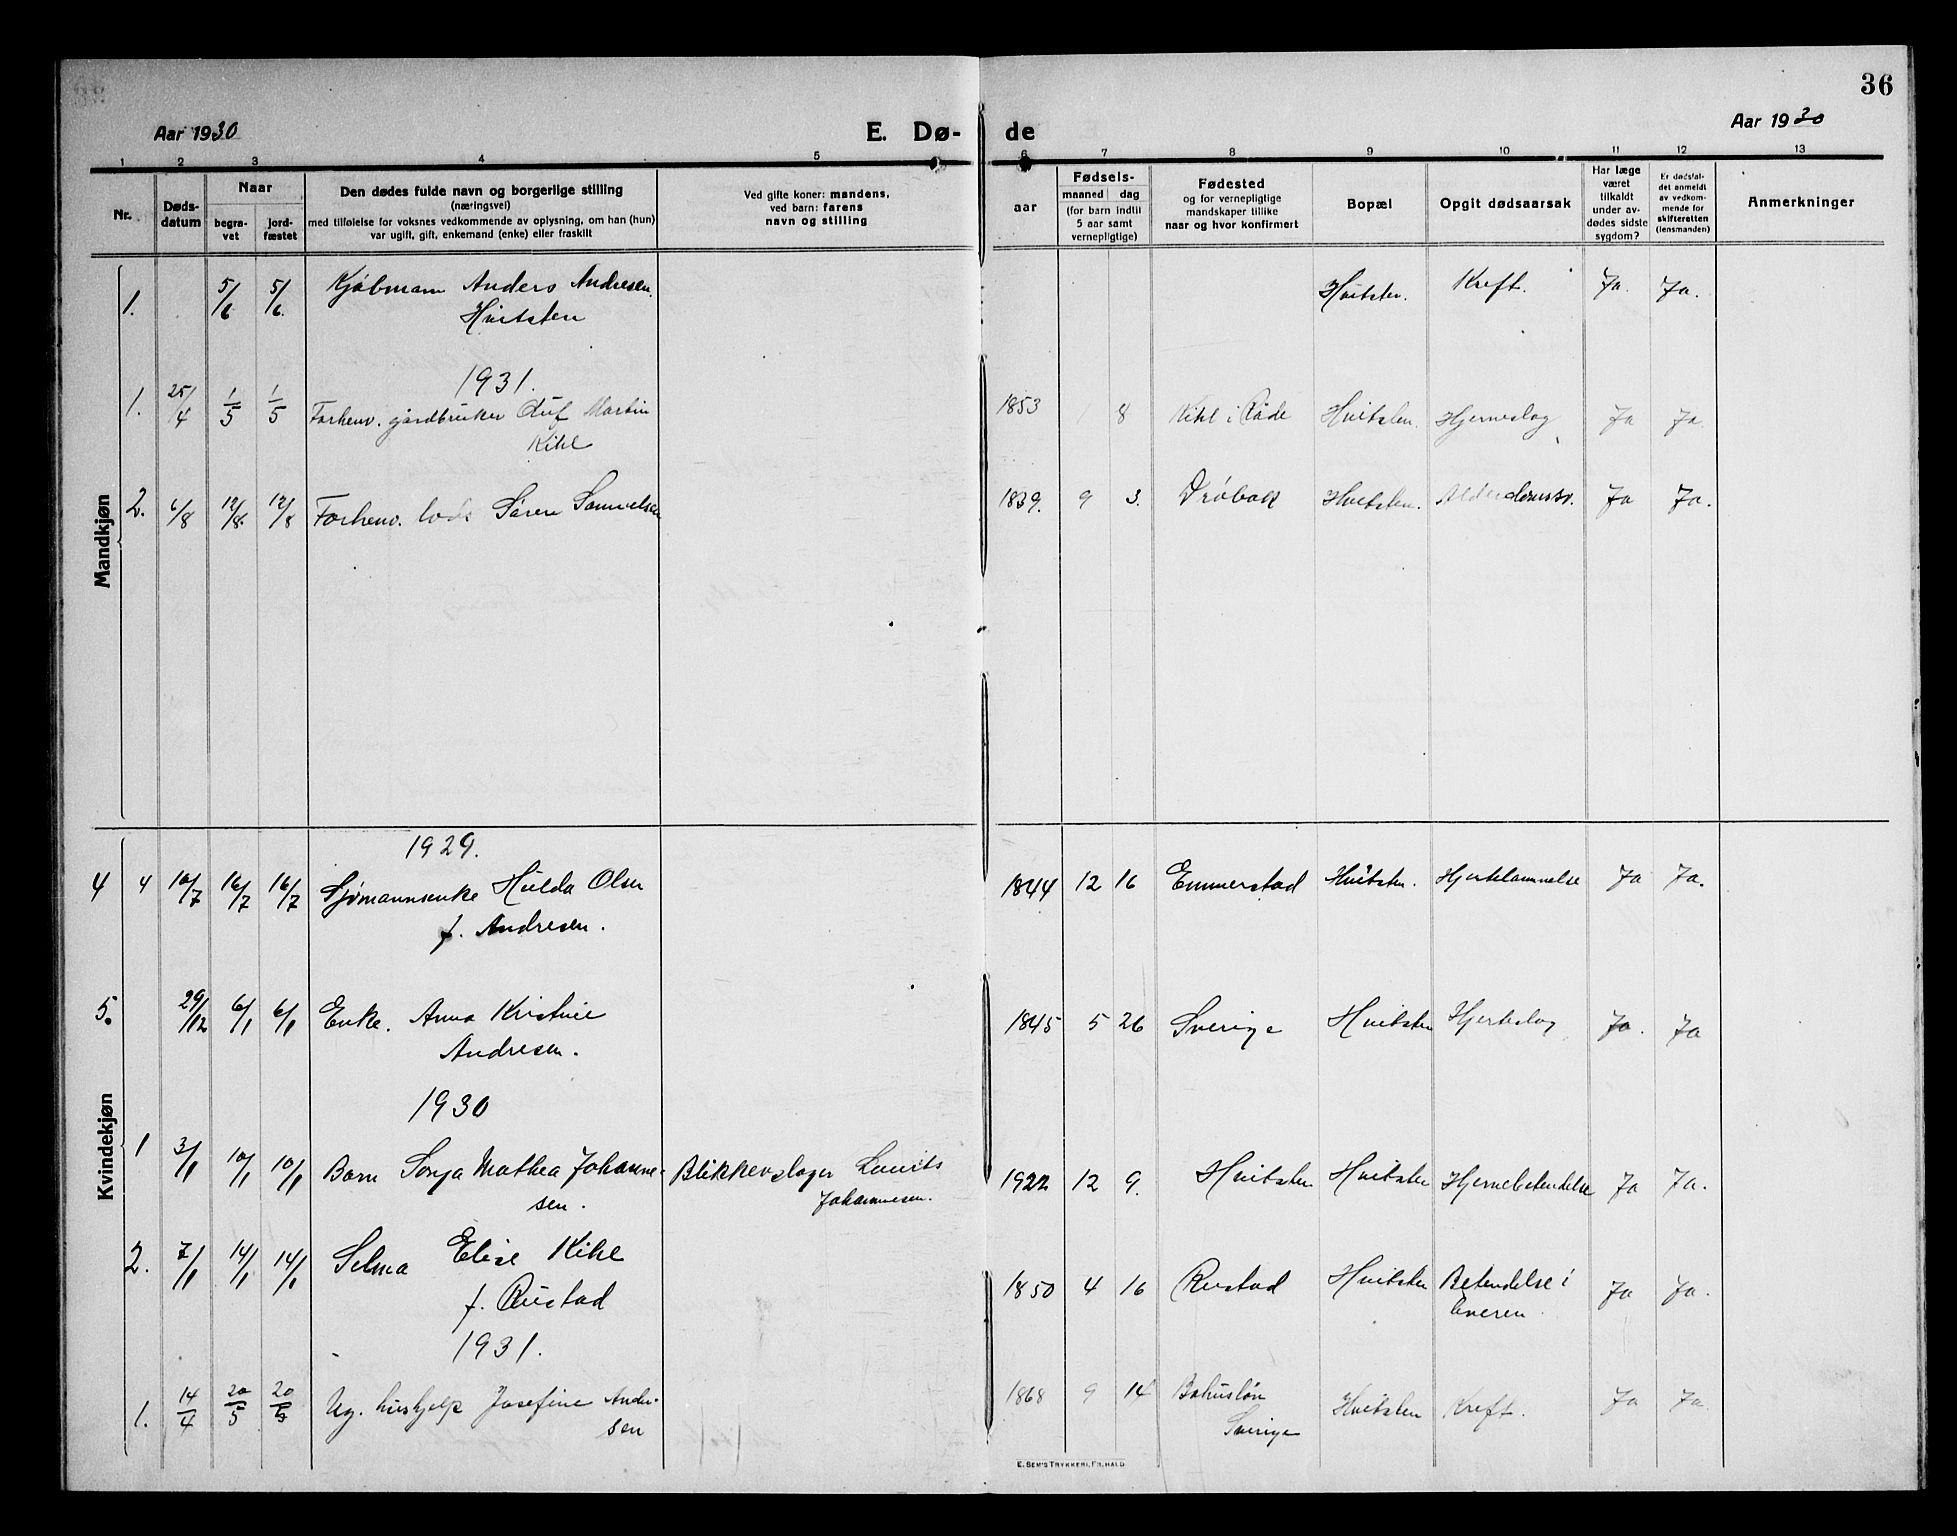 36
Aar 1930
E. Dø-
de
Aar 1930
1 2 3 4 5 6 7 8 9 10 11 12 13
Nr.
Døds-
datum
Naar
begra-
vet
jord-
fæstet
Den dødes fulde navn og borgerlige stilling
(næringsvei)
med tilføielse for voksnes vedkommende av oplysning, om han (hun)
var ugift, gift, enkemand (enke) eller fraskilt
Ved gifte koner: mandens,
ved barn: farens
navn og stilling
Fødsels-
aar
maaned dag
(for barn indtil
5 aar samt
vernepligtige)
Fødested
og for vernepligtige
mandskaper tillike
naar og hvor konfirmert
Bopæl
Opgit dødsaarsak
Har læge
været
tilkaldt
under av-
dødes sidste
sygdom?
Er dødsfal-
det anmeldt
av vedkom-
mende for
skifteretten
(lensmanden)
Anmerkninger
Mandkjøn
1. 5/6 5/6. Kjøbmann Anders Andresen. Hvitsten. Kreft. Ja. Ja.
Hvitsten
1931.
1. 25/4 1/5 1/5 Forhenv. gårdbruker Oluf Martin 1853 8 Kihl i Råde Hvitsten. Hjerneslag Ja Ja.
Kihl
2. 6/8 12/8. 12/8 Forhenv. lods Søren Samuelsen 1839. 9 3. Drøbak Hvitsten. Alderdomssv. Ja Ja.
Kvindekjøn
1929.
4 4 10/7 16/7 16/7 Sjømannsenke Hulda Olsen 1844 12 16 Emmerstad Hvitsten. Hjertelammelse Ja Ja.
f. Andresen.
5. 29/12 6/1 6/1 Enke. Anna Kristine 1845 5 26 Sverige Hvitsten Hjerteslag Ja. Ja
Andresen.
1930
1 3/1 10/1 10/1 Barn Sonja Mathea Johanne- Blikkenslager Laurits 1922 12 9. Hvitsten Hvitsten Hjernebetendelse Ja Ja.
sen. Johannesen.
2. 7/1 14/1 14/1 Selma Elise Kihl 1850 4 16 Rustad Hvitsten Betendelse i Ja Ja.
f. Rustad leveren
1931.
1. 14/4 20/5 20/5 Ug. hushjelp Josefine Ander- 1868 9 14 Bohuslän Hvitsten Kreft. Ja Ja.
sen Sverige
E. SEM'S TRYKKERI, FR.HALD